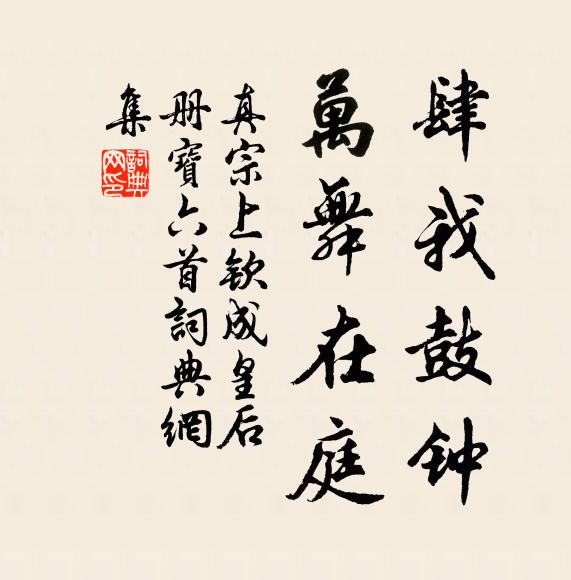 肆我鼓钟
萬舞在庭
真宗上欽成皇后
册寶六首詞典網
集
詞典网印